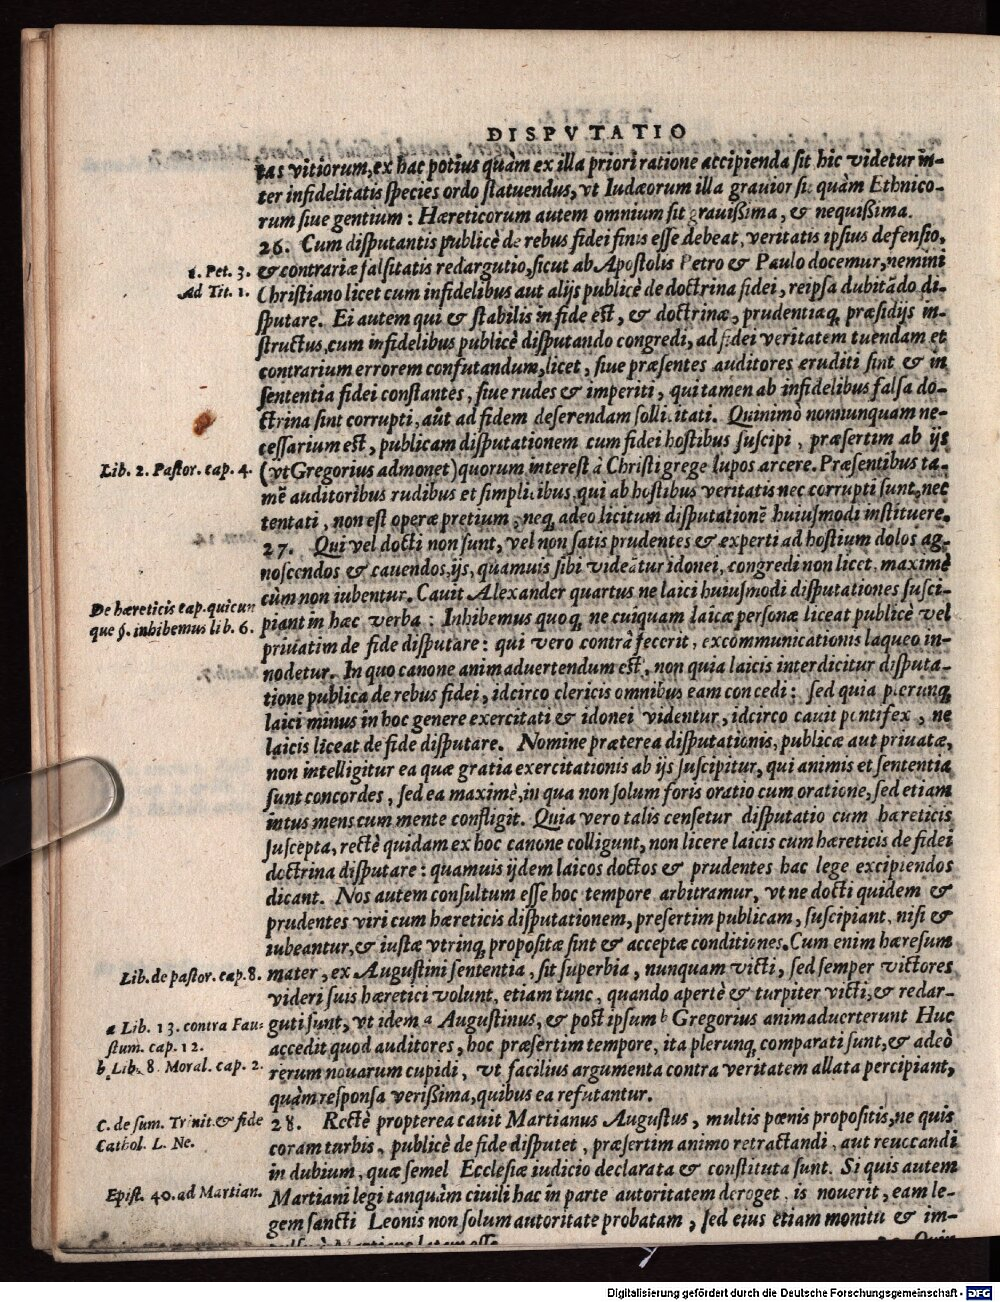 DISPVTATIO
tas vitiorum, ex hac potius quàm ex illa priori ratione accipienda sit hic videtur in-
ter infidelitatis species ordo statuendus, vt Iudæorum illa grauior sit quàm Ethnico-
rum siue gentium: Hæreticorum autem omnium sit grauißima, & nequißima.
26. Cum disputantis publicè de rebus fidei finis esse debeat, veritatis ipsius defensio,
1. Pet. 3.
& contrariæ falsitatis redargutio, sicut ab Apostolis Petro & Paulo docemur, nemini
Ad Tit. 1.
Christiano licet cum infidelibus aut alijs publicè de doctrina fidei, reipsa dubitãdo di-
sputare. Ei autem qui & stabilis in fide est, & doctrinæ, prudentiaq; præsidijs in-
structus, cum infidelibus publicè disputando congredi, ad fidei veritatem tuendam et
contrarium errorem confutandum, licet, siue præsentes auditores eruditi sint & in
sententia fidei constantes, siue rudes & imperiti, qui tamen ab infidelibus falsa do-
ctrina sint corrupti, aut ad fidem deserendam sollicitati. Quinimò nonnunquam ne-
cessarium est, publicam disputationem cum fidei hostibus suscipi, præsertim ab ijs
Lib. 2. Pastor. cap. 4.
(vt Gregorius admonet) quorum interest à Christi grege lupos arcere. Præsentibus ta-
mẽ auditoribus rudibus et simplicibus, qui ab hostibus veritatis nec corrupti sunt, nec
tentati, non est operæ pretium, neq; adeo licitum disputationẽ huiusmodi instituere.
27. Qui vel docti non sunt, vel non satis prudentes & experti ad hostium dolos ag-
noscendos & cauendos, ijs, quamuis sibi videãtur idonei, congredi non licet, maximè
cùm non iubentur. Cauit Alexander quartus ne laici huiusmodi disputationes susci-
De hæreticis cap. quicun
que §. inhibemus lib. 6.
piant in hæc verba: Inhibemus quoq; ne cuiquam laicæ personæ liceat publicè vel
priuatim de fide disputare: qui vero contrà fecerit, excommunicationis laqueo in-
nodetur. In quo canone animaduertendum est, non quia laicis interdicitur disputa-
tione publica de rebus fidei, idcirco clericis omnibus eam concedi: sed quia plerunq;
laici minus in hoc genere exercitati & idonei videntur, idcirco cauit pontifex, ne
laicis liceat de fide disputare. Nomine præterea disputationis, publicæ aut priuatæ,
non intelligitur ea quæ gratia exercitationis ab ijs suscipitur, qui animis et sententia
sunt concordes, sed ea maximè, in qua non solum foris oratio cum oratione, sed etiam
intus mens cum mente confligit. Quia vero talis censetur disputatio cum hæreticis
suscepta, rectè quidam ex hoc canone colligunt, non licere laicis cum hæreticis de fidei
doctrina disputare: quamuis ijdem laicos doctos & prudentes hac lege excipiendos
dicant. Nos autem consultum esse hoc tempore arbitramur, vt ne docti quidem &
prudentes viri cum hæreticis disputationem, presertim publicam, suscipiant, nisi &
iubeantur, & iustæ vtrinq; propositæ sint & acceptæ conditiones. Cum enim hæresum
Lib. de pastor. cap. 8.
mater, ex Augustini sententia, sit superbia, nunquam victi, sed semper victores
videri suis hæretici volunt, etiam tunc, quando apertè & turpiter victi, & redar-
a Lib. 13. contra Fau-
stum. cap. 12.
guti sunt, vt idem a Augustinus, & post ipsum b Gregorius animaduerterunt Huc
accedit quod auditores, hoc præsertim tempore, ita plerunq; comparati sunt, & adeò
b Lib. 8. Moral. cap. 2.
rerum nouarum cupidi, vt facilius argumenta contra veritatem allata percipiant,
quàm responsa verißima, quibus ea refutantur.
C. de sum. Trinit. & fide
Cathol. L. Ne.
28. Rectè propterea cauit Martianus Augustus, multis pœnis propositis, ne quis
coram turbis, publicè de fide disputet, præsertim animo retractandi, aut reuocandi
in dubium, quæ semel Ecclesiæ iudicio declarata & constituta sunt. Si quis autem
Epist. 40. ad Martian.
Martiani legi tanquàm ciuili hac in parte autoritatem deroget, is nouerit, eam le-
gem sancti Leonis non solum autoritate probatam, sed eius etiam monitu & im-
esse.
Quin
Digitalisierung gefördert durch die Deutsche Forschungsgemeinschaft - DFG